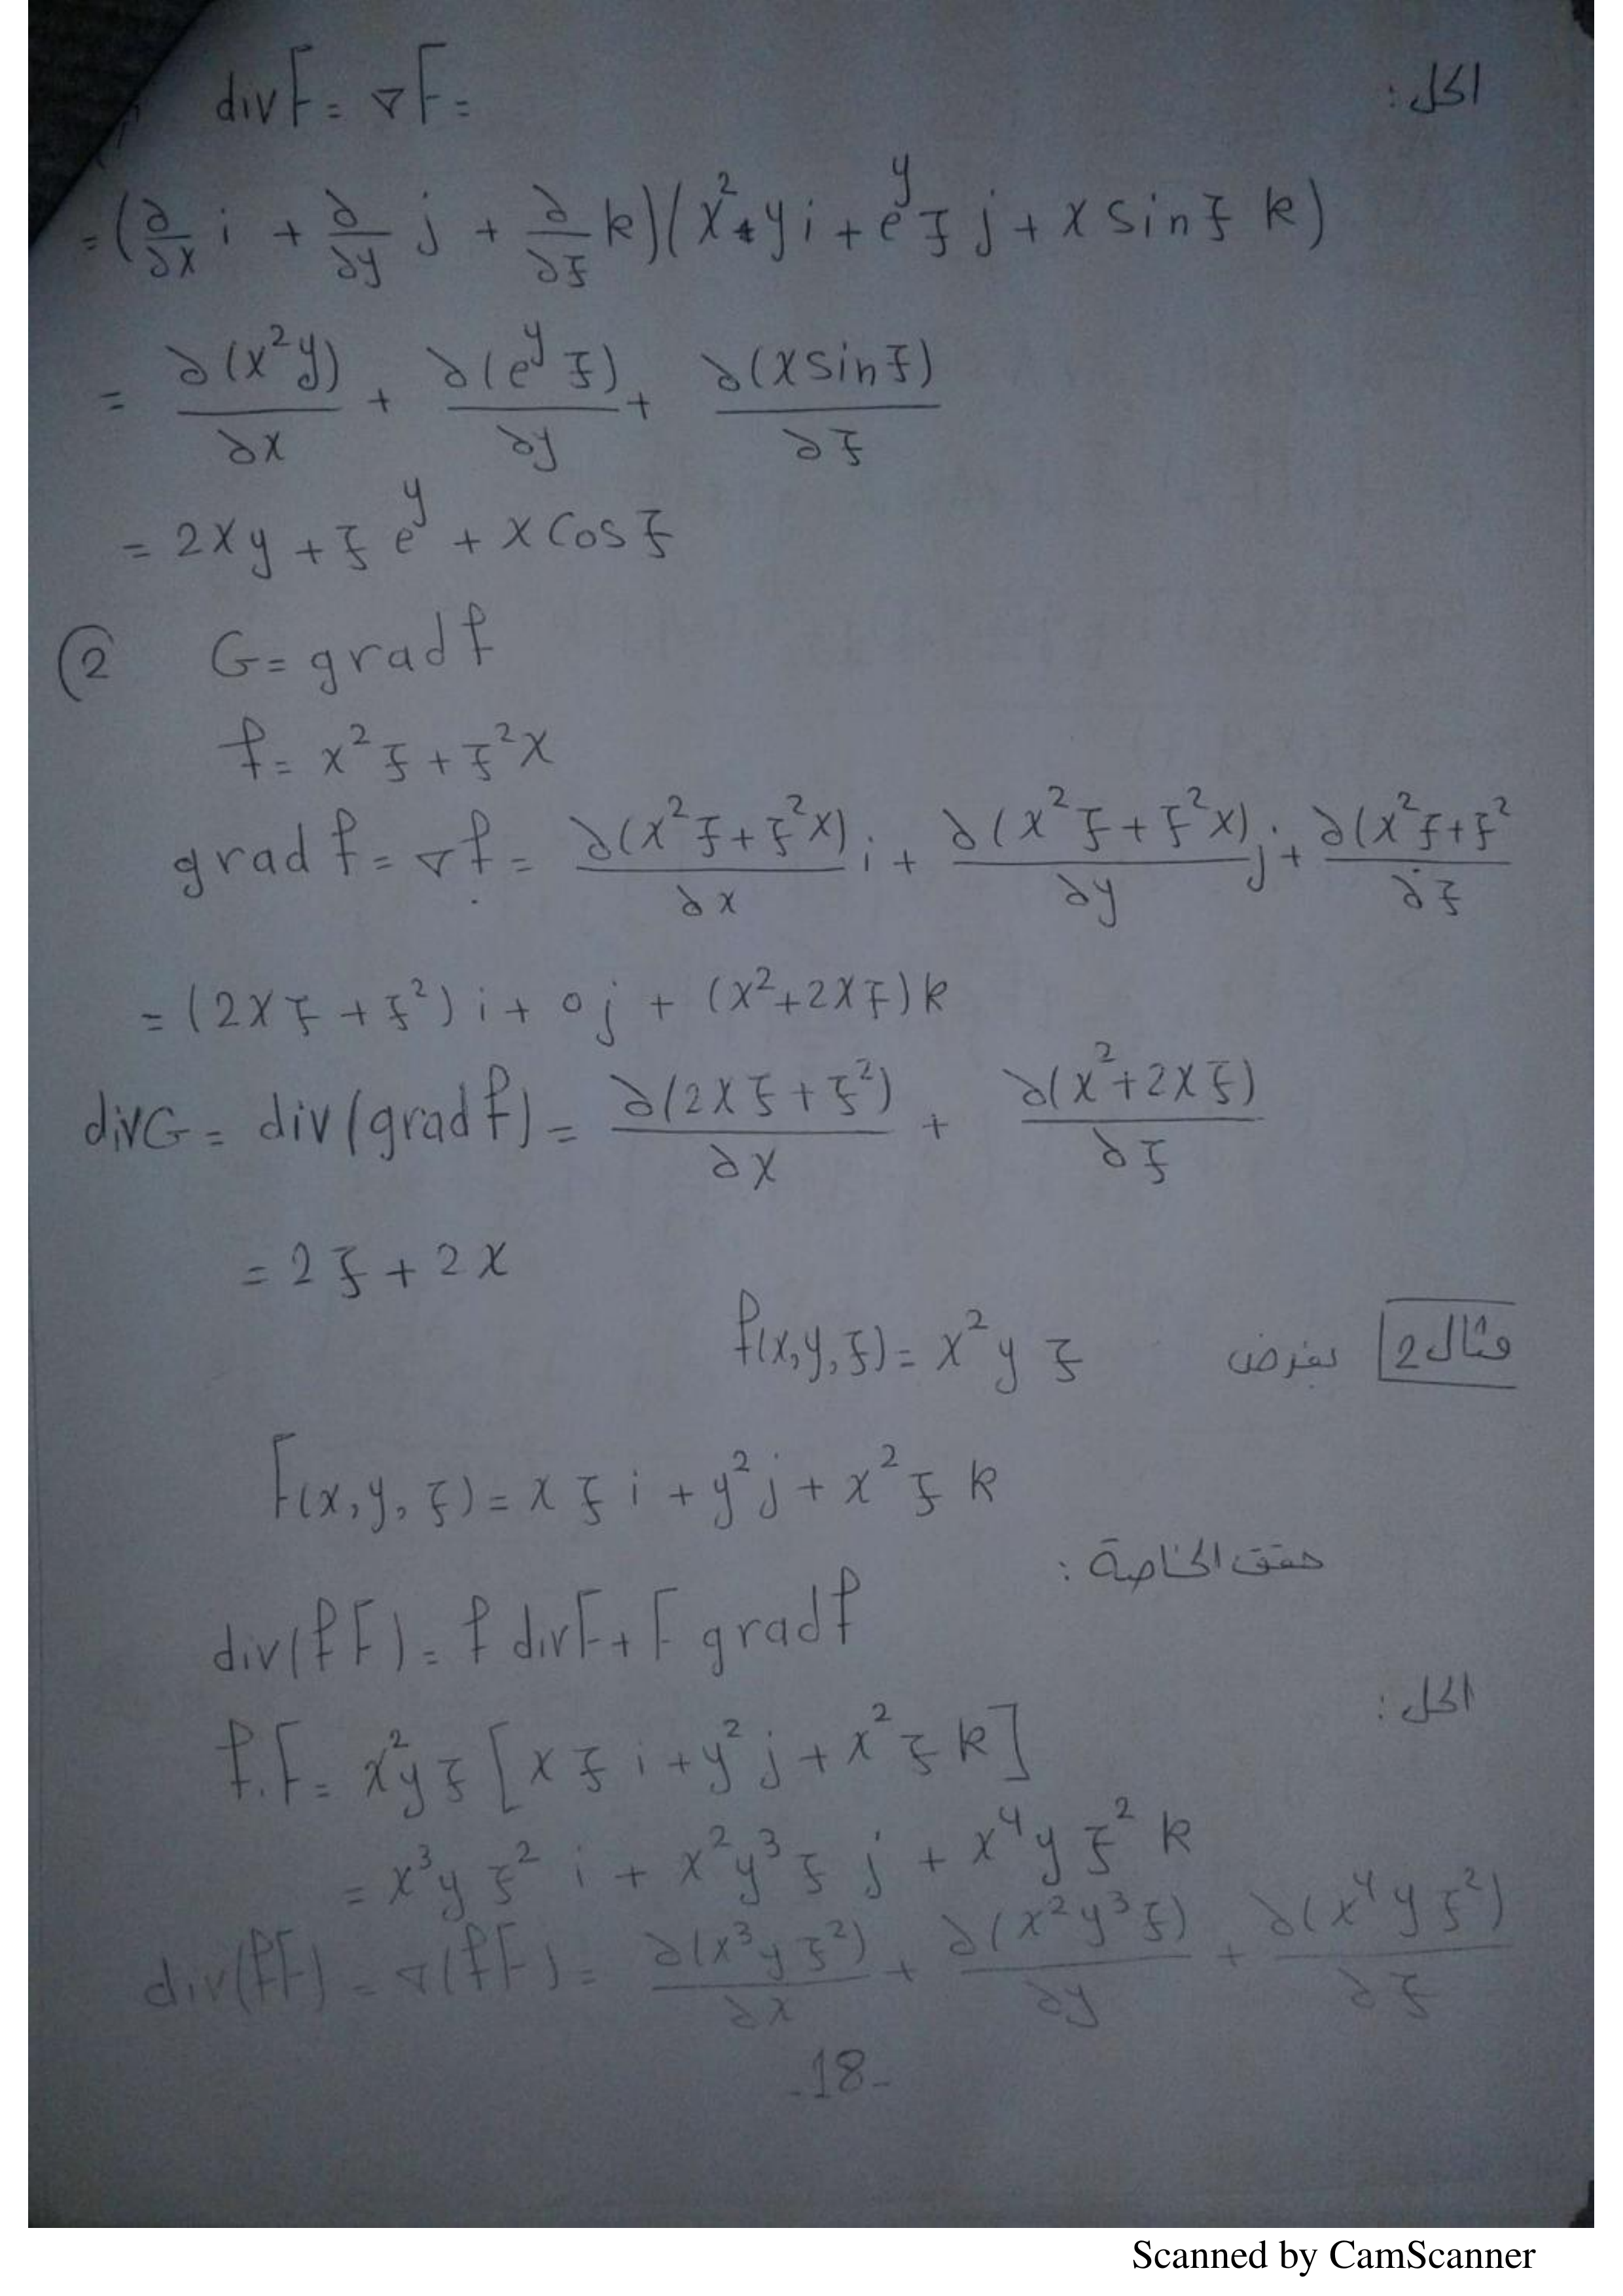 الحل:
divF = ∇F =
= (∂/∂x i + ∂/∂y j + ∂/∂z k)(x² y i + e^y z j + x sin z k)
= ∂(x²y)/∂x + ∂(e^y z)/∂y + ∂(x sin z)/∂z
= 2xy + z e^y + x cos z
(2 G = grad f
f = x² z + z² x
grad f = ∇f = ∂(x²z + z²x)/∂x i + ∂(x²z + z²x)/∂y j + ∂(x²z + z²/∂z
= (2xz + z²) i + 0 j + (x² + 2xz) k
divG = div(grad f) = ∂(2xz + z²)/∂x + ∂(x² + 2xz)/∂z
= 2z + 2x
مثال 2 بفرض f(x,y,z) = x² y z
F(x,y,z) = x z i + y² j + x² z k
حقق الخاصة:
div(fF) = f divF + F grad f
الحل:
f.F = x² y z [x z i + y² j + x² z k]
= x³ y z² i + x² y³ z j + x⁴ y z² k
div(fF) = ∇(fF) = ∂(x³ y z²)/∂x + ∂(x² y³ z)/∂y + ∂(x⁴ y z²)/∂z
-18-
Scanned by CamScanner